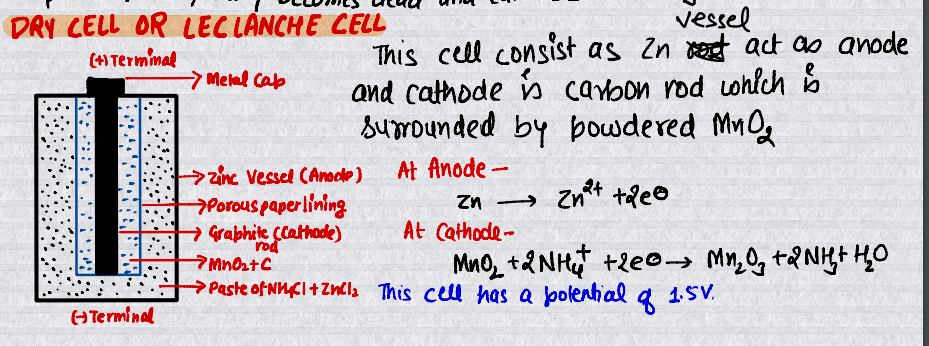 becomes dead and
DRY CELL OR LECLANCHE CELL
(+) Terminal
Metal Cap
Zinc Vessel (Anode)
Porous paper lining
Graphite (Cathode)
rod
MnO₂+C
Paste of NH₄Cl + ZnCl₂
(-) Terminal
vessel
This cell consist as Zn rod act as anode
and cathode is carbon rod which is
surrounded by powdered MnO₂
At Anode –
Zn → Zn²⁺ + 2e⊖
At Cathode –
MnO₂ + 2NH₄⁺ + 2e⊖ → Mn₂O₃ + 2NH₃ + H₂O
This cell has a potential of 1.5V.